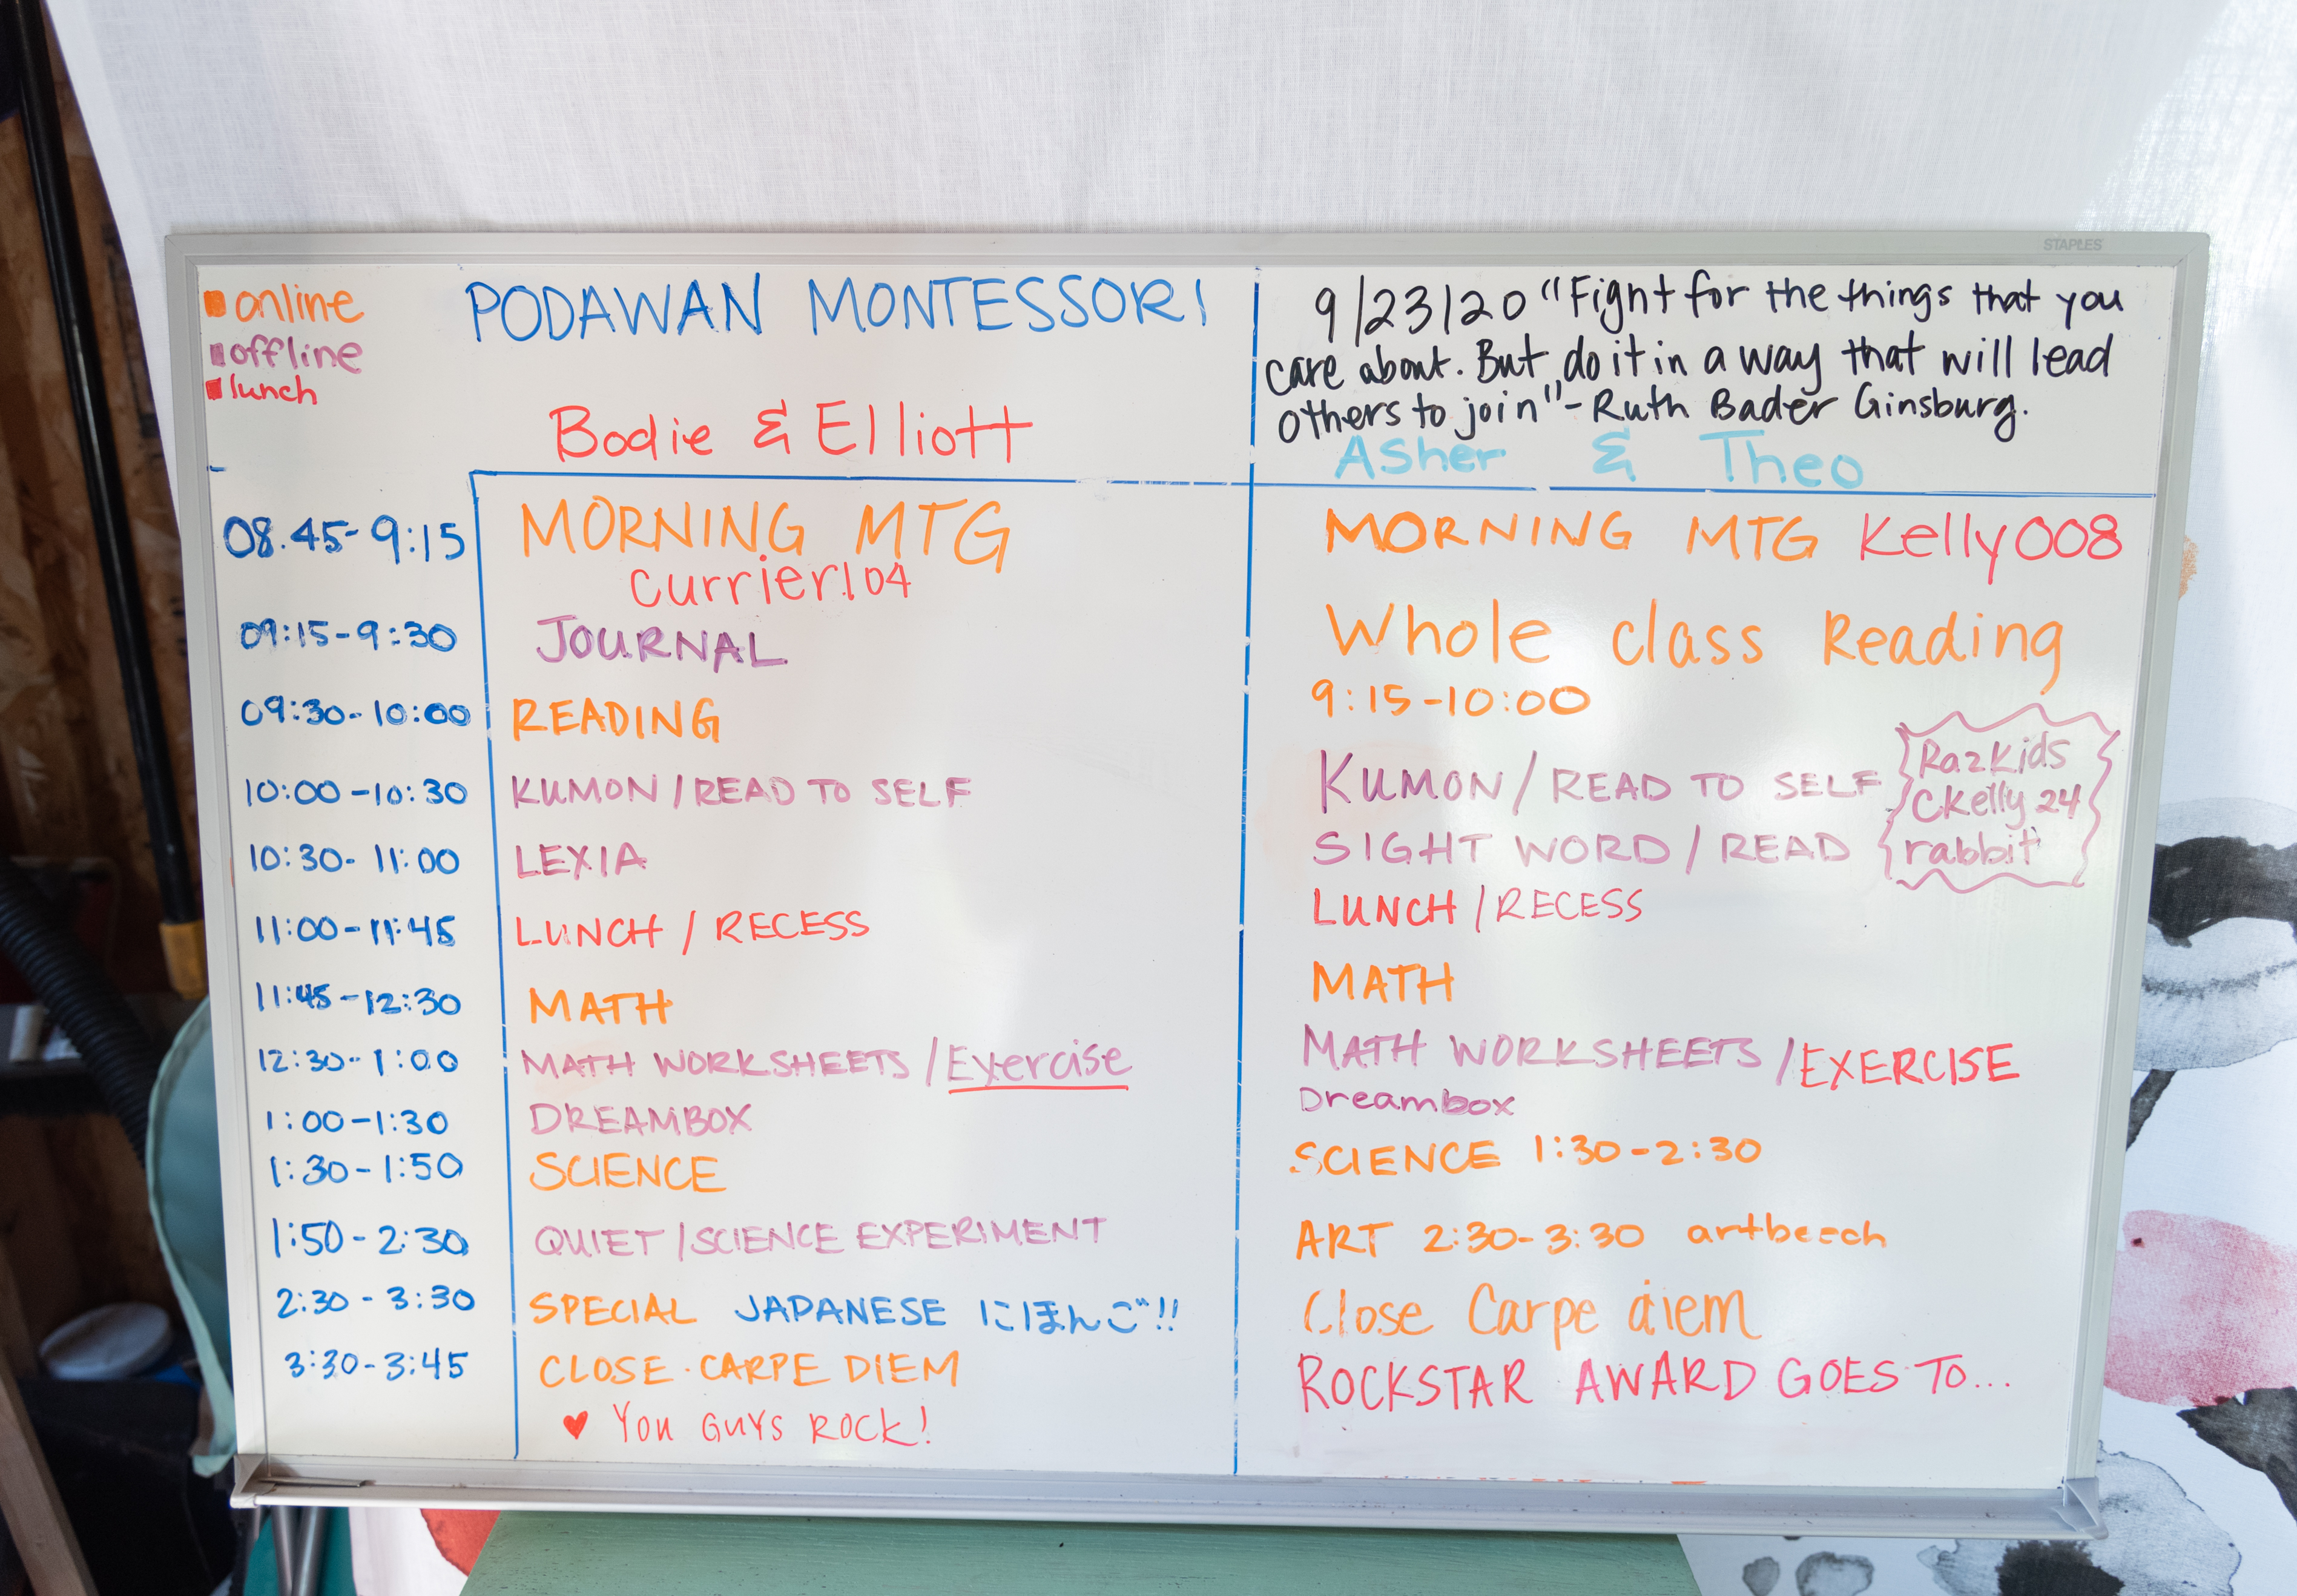 STAPLES
online
offline
lunch
PODAWAN MONTESSORI
Bodie & Elliott
9/23/20 "Fight for the things that you
care about. But do it in a way that will lead
others to join" - Ruth Bader Ginsburg.
Asher & Theo
08.45-9:15 MORNING MTG
currier104
09:15-9:30 JOURNAL
09:30-10:00 READING
10:00-10:30 KUMON / READ TO SELF
10:30-11:00 LEXIA
11:00-11:45 LUNCH / RECESS
11:45-12:30 MATH
12:30-1:00 MATH WORKSHEETS / Exercise
1:00-1:30 DREAMBOX
1:30-1:50 SCIENCE
1:50-2:30 QUIET / SCIENCE EXPERIMENT
2:30-3:30 SPECIAL JAPANESE にほんご!!
3:30-3:45 CLOSE · CARPE DIEM
♥ You GUYS ROCK!
MORNING MTG Kelly008
Whole class Reading
9:15-10:00
KUMON / READ TO SELF
SIGHT WORD / READ
RazKids
CKelly24
rabbit
LUNCH / RECESS
MATH
MATH WORKSHEETS / EXERCISE
Dreambox
SCIENCE 1:30-2:30
ART 2:30-3:30 artbeech
Close Carpe diem
ROCKSTAR AWARD GOES TO...